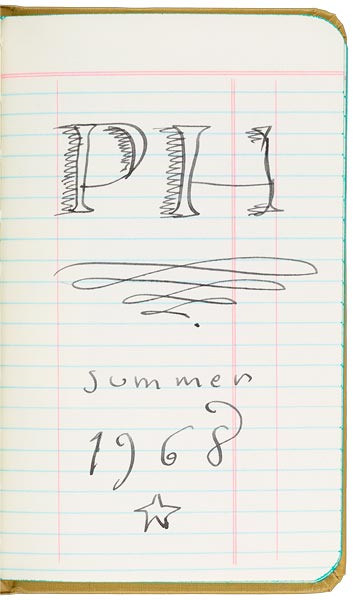 PH
summer
1968